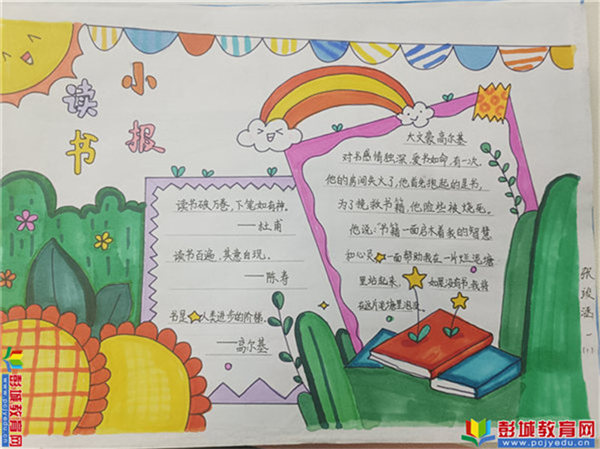 读书
小报
读书破万卷，下笔如有神。
——杜甫
读书百遍，其意自现。
——陈寿
书是人类进步的阶梯。
——高尔基
大文豪高尔基
对书感情独深，爱书如命，有一次，
他的房间失火了，他首先抱起的是书，
为了挽救书籍，他险些被烧死。
他说："书籍一面启示着我的智慧
和心灵，一面帮助我在一片烂泥塘
里站起来，如果没有书，我将
在这片泥塘里
张
涵
彭城教育网
www.pcjyedu.cn
彭城教育网
www.pcjyedu.cn